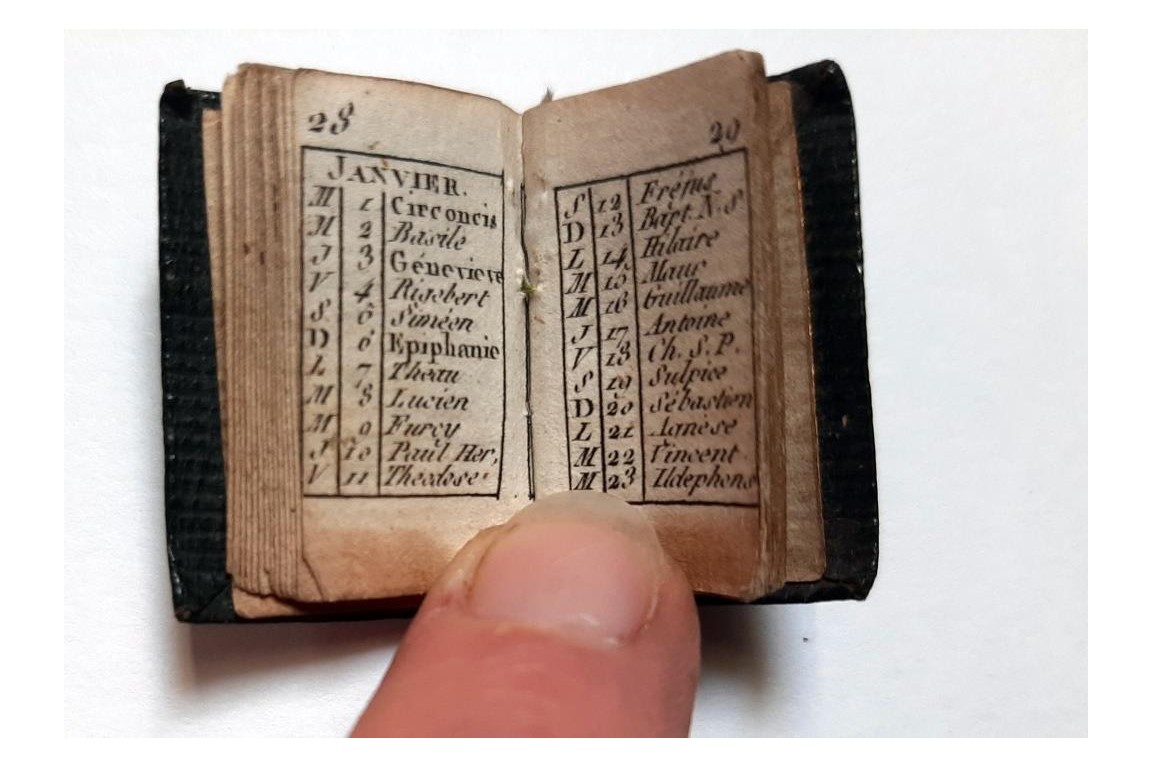 28
JANVIER.
M 1 Circoncis
M 2 Basile
J 3 Génevieve
V 4 Rigobert
S 5 Siméon
D 6 Epiphanie
L 7 Theau
M 8 Lucien
M 9 Furcy
J 10 Paul Her.
V 11 Theodose
29
S 12 Fréjus
D 13 Bapt. N. S
L 14 Hilaire
M 15 Maur
M 16 Guillaume
J 17 Antoine
V 18 Ch. S. P.
S 19 Sulpice
D 20 Sébastien
L 21 Agnése
M 22 Vincent
M 23 Ildephons